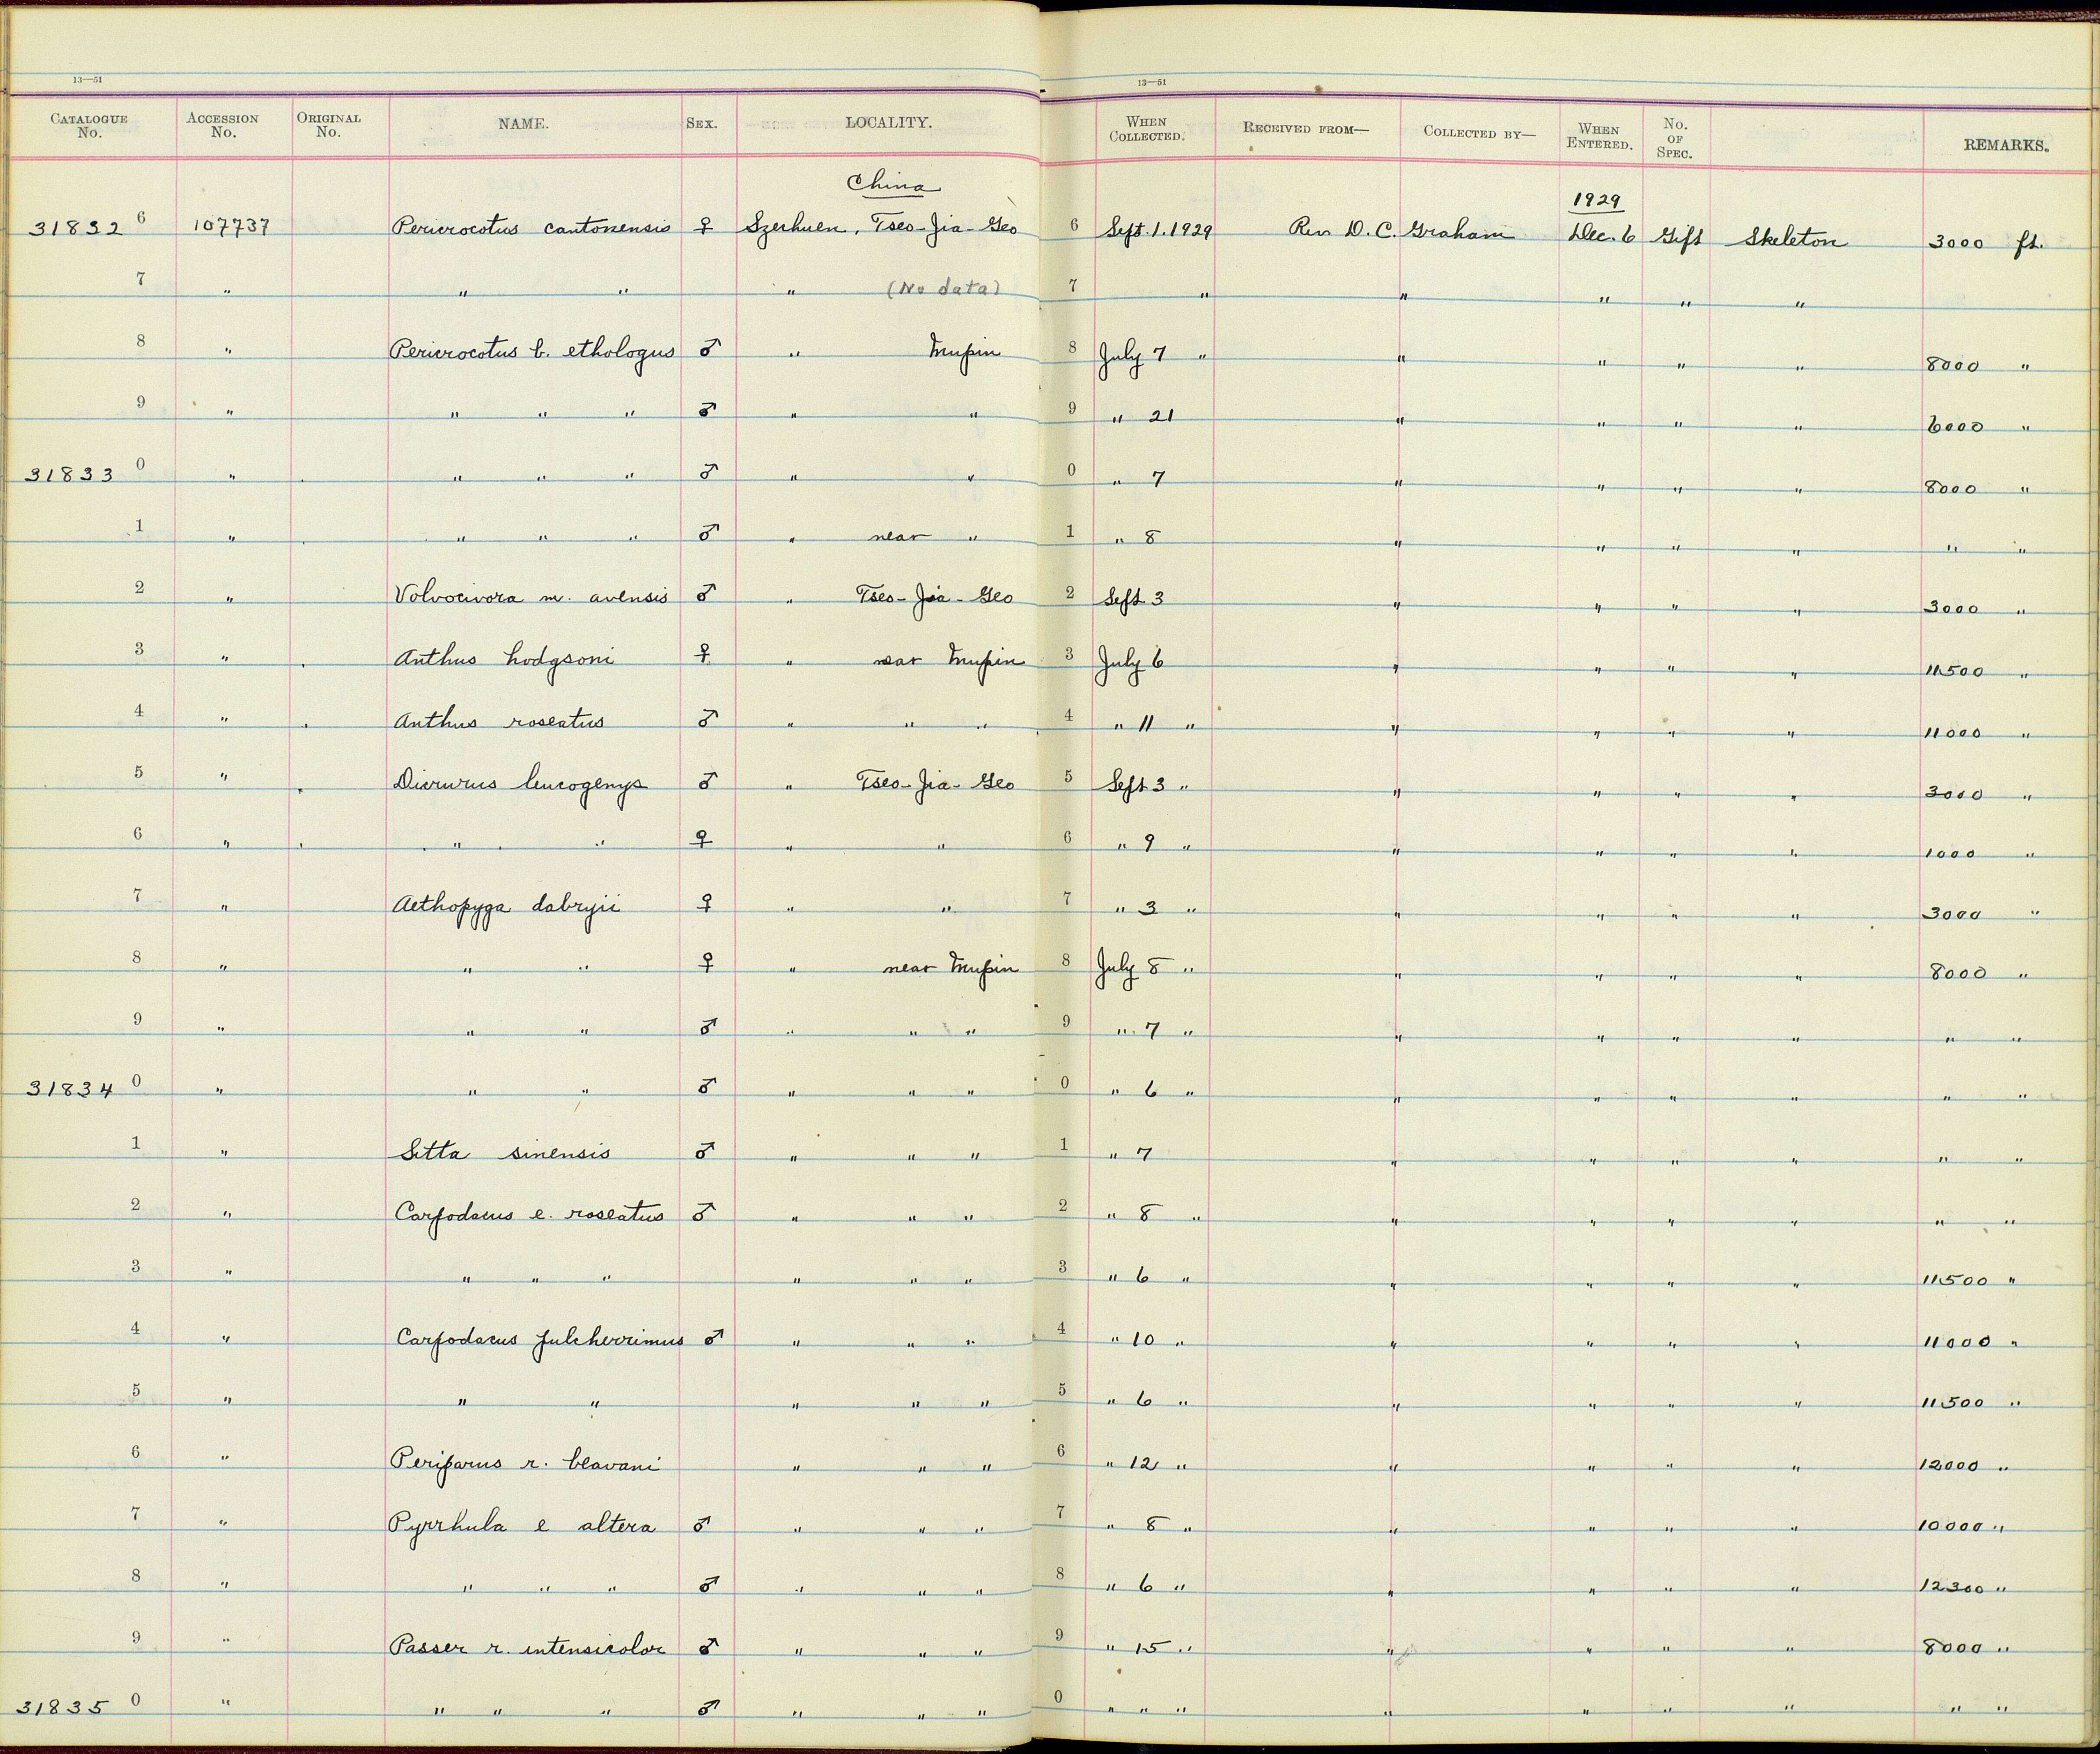 13—51 13—51
CATALOGUE No. ACCESSION No. ORIGINAL No. NAME. SEX. LOCALITY. WHEN COLLECTED. RECEIVED FROM— COLLECTED BY— WHEN ENTERED. No. OF SPEC. REMARKS.
China 1929
31832 6 107737 Pericrocotus cantonensis ♀ Szechuen, Tseo-Jia-Geo 6 Sept. 1. 1929 Rev D. C. Graham Dec. 6 Gift Skeleton 3000 ft.
7 " " " " (No data) 7 " " " " "
8 " Pericrocotus b. ethologus ♂ " Mupin 8 July 7 " " " " " 8000 "
9 " " " " ♂ " " 9 " 21 " " " " 6000 "
31833 0 " " " " ♂ " " 0 " 7 " " " " 8000 "
1 " " " " ♂ " near " 1 " 8 " " " " " "
2 " Volvocivora m. avensis ♂ " Tseo-Jia-Geo 2 Sept 3 " " " " 3000 "
3 " Anthus hodgsoni ♀ " near Mupin 3 July 6 " " " " 11500 "
4 " Anthus roseatus ♂ " " " 4 " 11 " " " " " 11000 "
5 " Dicrurus leucogenys ♂ " Tseo-Jia-Geo 5 Sept 3 " " " " " 3000 "
6 " " " ♀ " " 6 " 9 " " " " " 1000 "
7 " Aethopyga dabryii ♀ " " 7 " 3 " " " " " 3000 "
8 " " " ♀ " near Mupin 8 July 8 " " " " " 8000 "
9 " " " ♂ " " " 9 " 7 " " " " " " "
31834 0 " " " ♂ " " " 0 " 6 " " " " " " "
1 " Sitta sinensis ♂ " " " 1 " 7 " " " " " "
2 " Carpodacus e. roseatus ♂ " " " 2 " 8 " " " " " " "
3 " " " " " " " 3 " 6 " " " " " 11500 "
4 " Carpodacus pulcherrimus ♂ " " " 4 " 10 " " " " " 11000 "
5 " " " " " " 5 " 6 " " " " " 11500 "
6 " Periparus r. beavani " " " 6 " 12 " " " " " 12000 "
7 " Pyrrhula e altera ♂ " " " 7 " 8 " " " " " 10000 "
8 " " " " ♂ " " " 8 " 6 " " " " " 12300 "
9 " Passer r. intensicolor ♂ " " " 9 " 15 " " " " " 8000 "
31835 0 " " " " ♂ " " " 0 " " " " " " " " "